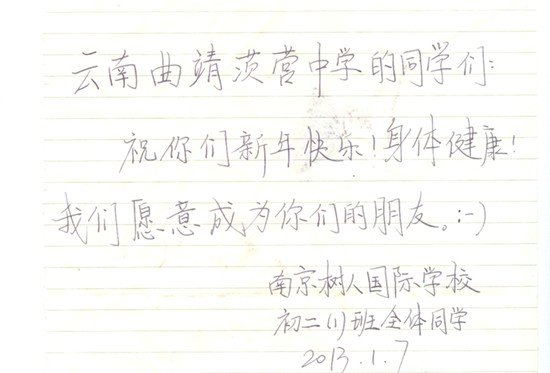 云南曲靖茨营中学的同学们：
祝你们新年快乐！身体健康！
我们愿意成为你们的朋友。:-)
南京树人国际学校
初二(1)班全体同学
2013.1.7